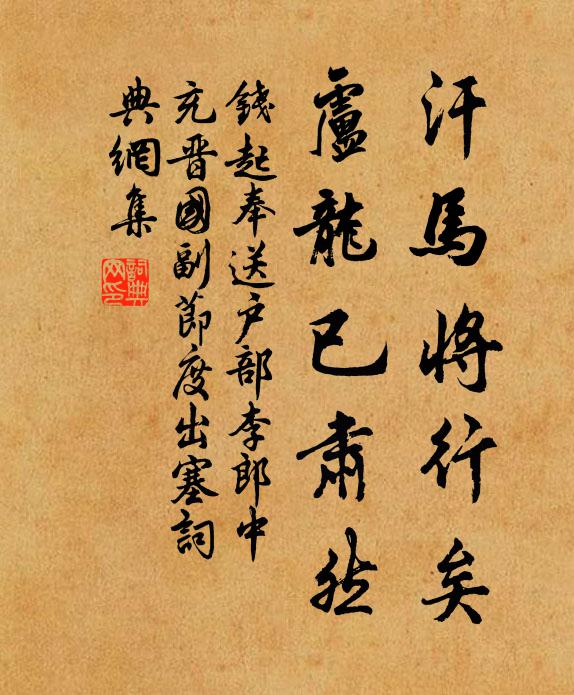 汗馬將行矣
盧龍已肅然
錢起奉送户部李郎中
充晋國副節度出塞詞
典網集
詞典
网印